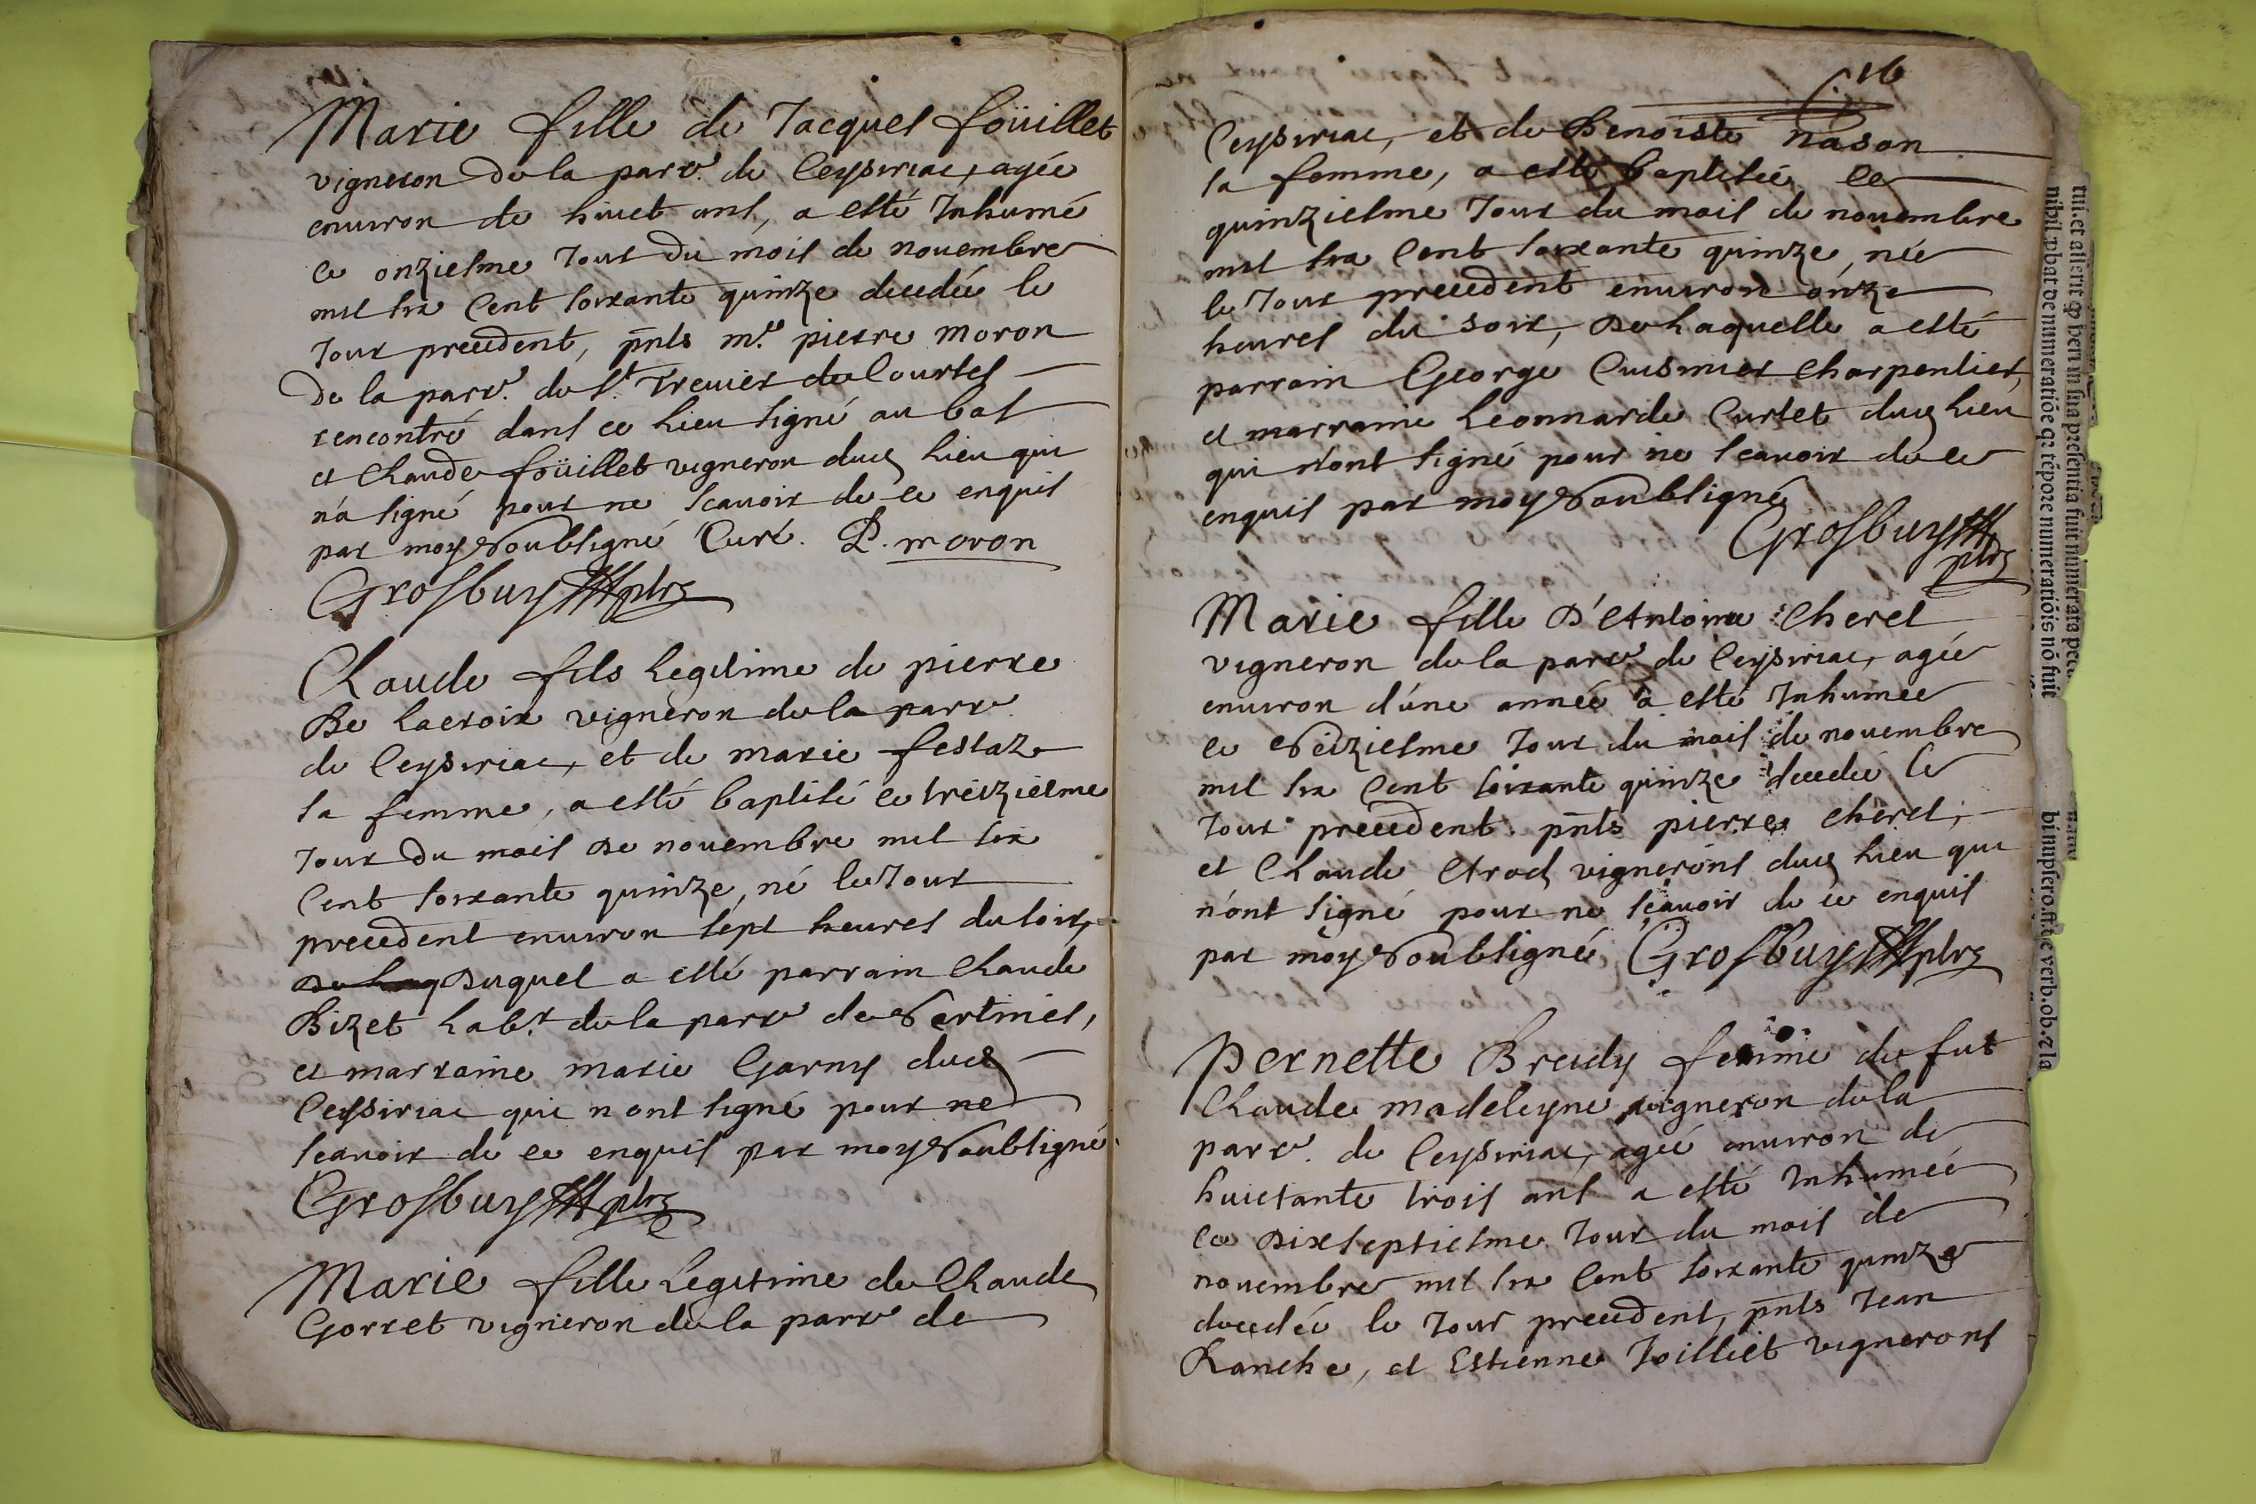 Marie fille de Jacques foüillet
vigneron de la parr.e de Ceysiriac, agée
environ de huict ans, a esté Inhumé
ce onziesme Jour du mois de novembre
mil six Cent soixante quinze decedée le
Jour precedent, pnts m.e pierre moron
De la parr.e de St. Trevier de Courtes
rencontré dans ce lieu signé au bas
et Claude foüillet vigneron dud lieu qui
n'a signé pour ne scavoir de ce enquis
par moy soubsigné Curé. P. moron
Grosbuy pbre
Claude fils Legitime de pierre
De Lacroix vigneron de la parr.e
de Ceysiriac, et de marie festaz
sa femme, a esté baptisé ce treiziesme
Jour du mois de novembre mil six
Cent soixante quinze, né le Jour
precedent environ sept heures du soir,
Duquel a esté parrain Claude
Bizet Lab.r de la parr.e de
et marraine marie Garny dud
Ceysiriac qui n ont signé pour ne
scavoir de ce enquis par moy soubsigné
Grosbuy pbre
Marie fille Legitime de Claude
Gorret vigneron de la parr.e de
16
Ceysiriac, et de Benoiste nason
sa femme, a esté baptisée ce
quinziesme Jour du mois de novembre
mil six Cent soixante quinze, née
le Jour precedent environ onze
heures du soir, De Laquelle a esté
parrain George Cuisinier Charpentier,
et marraine Leonnarde Curlet dud lieu
qui n'ont signé pour ne scavoir de ce
enquis par moy soubsigné
Grosbuy
pbre
Marie fille D'Antoine Cherel
vigneron de la parr.e de Ceysiriac, agée
environ d'une année a esté Inhumée
ce seiziesme Jour du mois de novembre
mil six Cent soixante quinze decedée le
Jour precedent. pnts pierre Cherel,
et Claude vignerons dud lieu qui
n'ont signé pour ne scavoir de ce enquis
par moy soubsigné Grosbuy pbre
Pernette Breidy femme de fut
Claude madeleyne vigneron de la
parr.e de Ceysiriac, agée environ de
huictante trois ans a esté Inhumée
ce Dixseptiesme Jour du mois de
novembre mil six Cent soixante quinze
decedée le Jour precedent, pnts Jean
Ranche, et Estienne Joilliet vignerons